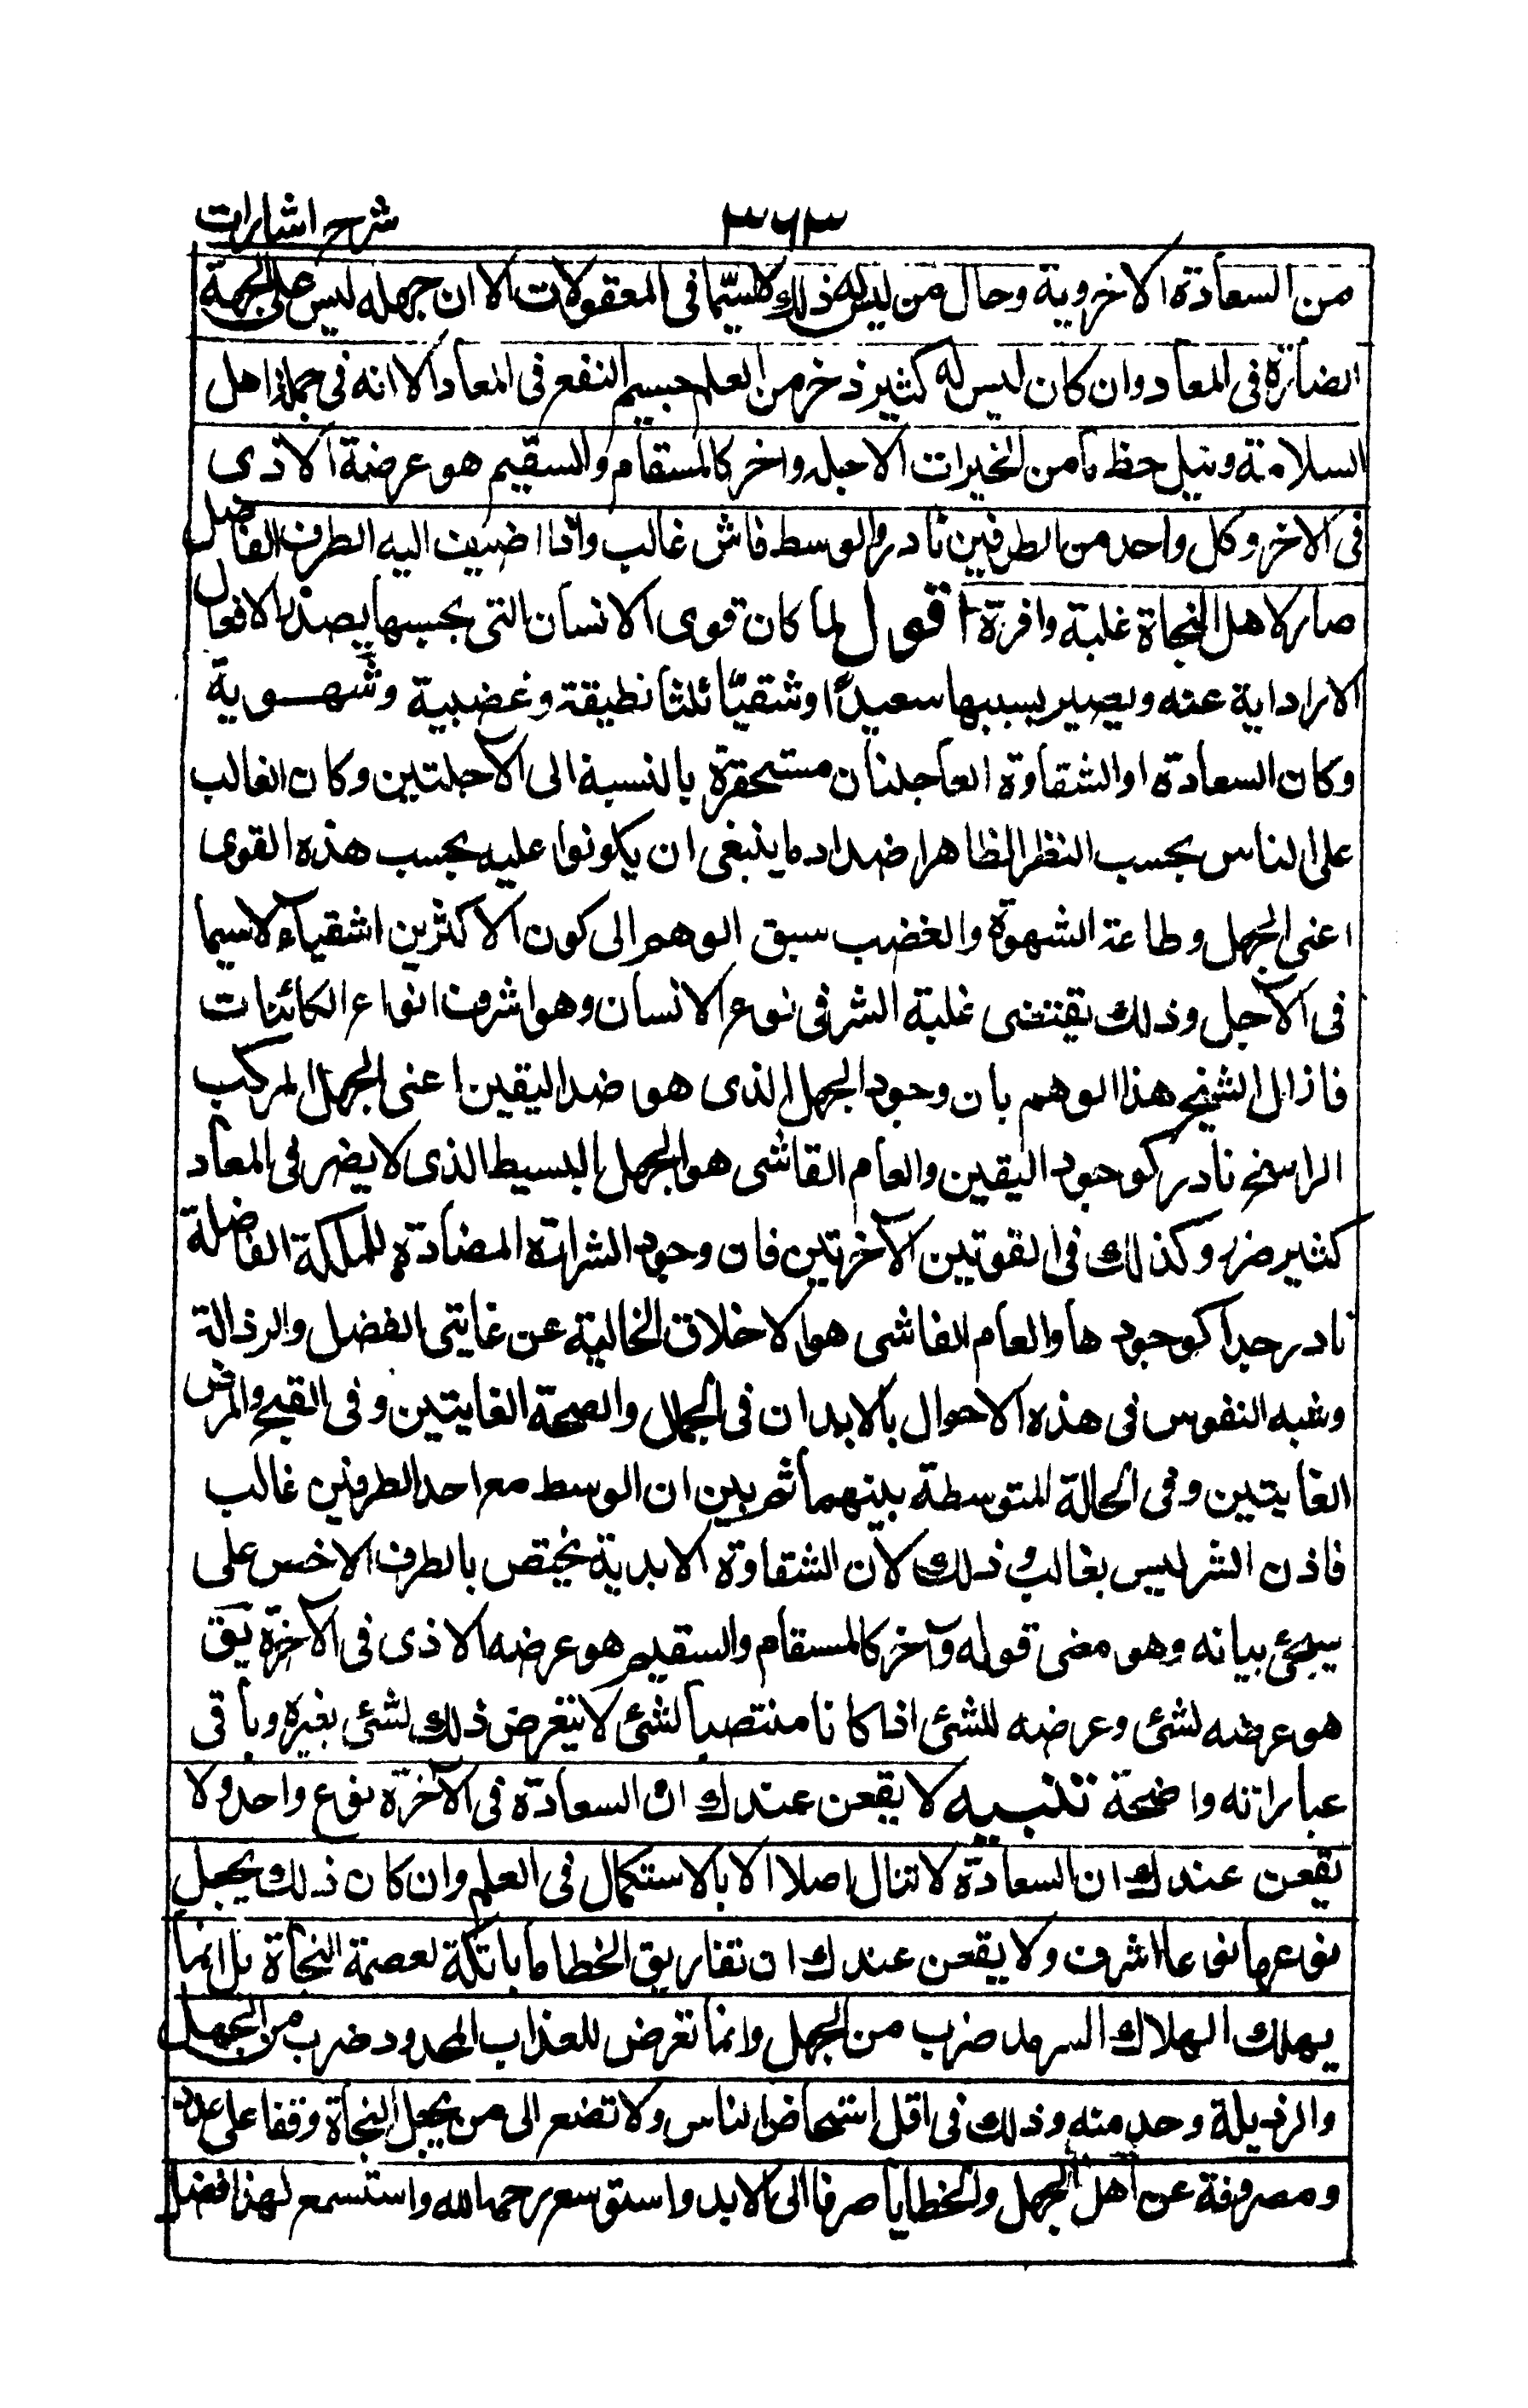 شرح اشارات
٣٦٣
من السعادة الاخروية وحال من ليس له ذلك لاسيّما فى المعقولات الا ان جهله ليس على الجهة
الضارّة فى المعاد وان كان ليس له كثير ذخر من العلم جسيم النفع فى المعاد الا انه فى جملة اهل
السلامة ونيل حظ ما من الخيرات الاجله واخر كالمسقام والسقيم هو عرضة الاذى
فى الاخر وكل واحد من الطرفين نادر والوسط فاش غالب واذا اضيف اليه الطرف الفاضل
صار لاهل النجاة غلبة وافرة اقول لما كان قوى الانسان التى بحسبها يصدر الافعال
الاراداية عنه ويصير بسببها سعيدًا وشقيّا ثلثا نطيقة وغضبية وشهوية
وكان السعادة او الشقاوة العاجلتان مستحقرة بالنسبة الى الآجلتين وكان الغالب
على الناس بحسب النظر الظاهر اضداد ما ينبغى ان يكونوا عليه بحسب هذه القوى
اعنى الجهل وطاعة الشهوة والغضب سبق الوهم الى كون الاكثرين اشقياء لاسيما
فى الآجل وذلك يقتضى غلبة الشر فى نوع الانسان وهو اشرف انواع الكائنات
فازال الشيخ هذا الوهم بان وجود الجهل الذى هو ضد اليقين اعنى الجهل المركب
الراسخ نادر كوجود اليقين والعام القاشى هو الجهل البسيط الذى لا يضر فى المعاد
كثير ضرر وكذلك فى القوتين الآخرتين فان وجود الشرارة المضادة للملكة الفاضلة
نادر جدا كوجودها والعام الفاشى هو الاخلاق الخالية عن غايتى الفضل والرذالة
وشبه النفوس فى هذه الاحوال بالابدان فى الجمال والصحة الغايتين وفى القبح والمرض
الغايتين وفى الحالة المتوسطة بينهما ثم بين ان الوسط مع احد الطرفين غالب
فاذن الشر ليس بغالب و ذلك لان الشقاوة الابدية يختص بالطرف الاخس على
سيجئ بيانه وهو معنى قوله وآخر كالمسقام والسقيم هو عرضه الاذى فى الآخرة يق
هو عرضه لشئ وعرضه للشئ اذا كانا منتصبا لشئ لا يتعرض ذلك لشئ بغيره وباقى
عباراته واضحة تنبيه لا يقعن عندك ان السعادة فى الآخرة نوع واحد ولا
يقعن عندك ان السعادة لا تنال اصلا الا بالاستكمال فى العلم وان كان ذلك يجعل
نوعها نوعا اشرف ولا يقعن عندك ان تفاريق الخطايا باتكة لعصمة النجاة بل انما
يهلك الهلاك السرمد ضرب من الجهل وانما تعرض للعذاب المحدود ضرب من الجهل
والرذيلة وحد منه وذلك فى اقل اشخاص الناس ولا تضع الى من يجعل النجاة وقفا على عدد
ومصروفة عن اهل الجهل والخطايا صرفا الى الابد واستوسع رحمة الله واستسمع لهذا فضل